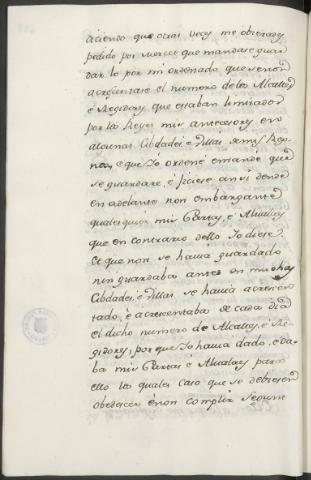 diciendo que otras veces me obierades
pedido por merced que mandase guar
dar lo por mi ordenado que se non
acrecentase el numero de los Alcaldes
é Regidores que estaban limitados
por los Reyes mis antecesores en
algunas Cibdades é Villas de mis Reg
nos, é que Yo ordené é mandé que
se guardase, é ficiese ansi dende
en adelante non embargante
qualesquier mis Cartas, é Alvalaes
que en contrario dello Yo diese
é que non se havia guardado
nin guardaba antes en muchas
Cibdades, é Villas se havia acrecen
tado, é acrecentaba de cada dia
el dicho numero de Alcaldes, é Re
gidores, por que Yo havia dado, é da
ba mis Cartas é Alvalaes para
ello las quales caso que se debiesen
obedecer é non complir segunt